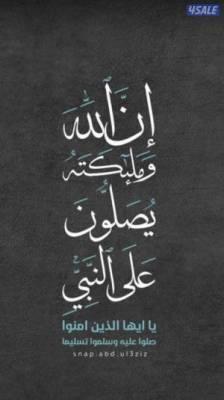 4SALE
إنَّ ٱللَّهَ
وَمَلَٰٓئِكَتَهُۥ
يُصَلُّونَ
عَلَى ٱلنَّبِيِّ
يا ايها الذين امنوا
صلوا عليه وسلموا تسليما
snap.abd.ul3ziz